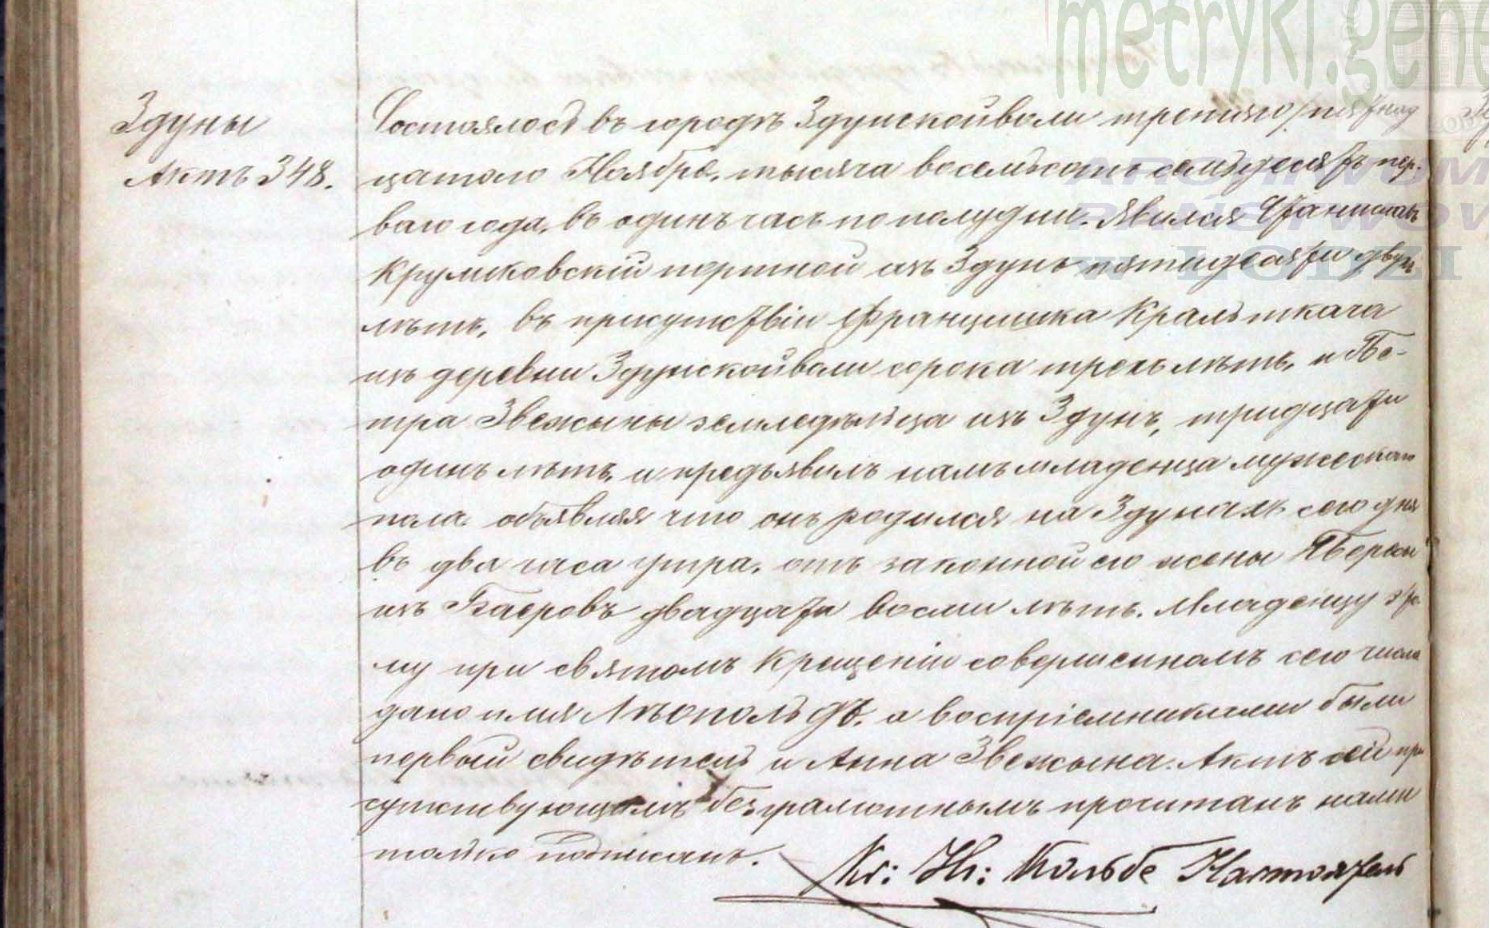 metryki.gene
Здуны
Актъ 348.
Состоялось въ городѣ Здунскойволи третяго /пятнад
цатаго Ноября, тысяча восемьсотъ семьдесятъ пер-
ваго года, въ одинъ часъ по полудни. Явился
Круликовскій портной изъ Здунъ пятидесяти двухъ
лѣтъ, въ присутствіи Францишка Краль ткача
изъ деревни Здунскойволи сорока трехъ лѣтъ, и Пе-
тра Звежыны земледѣльца изъ Здунъ, тридцати
одинъ лѣтъ, и предъявилъ намъ младенца мужескаго
пола объявляя что онъ родился на Здунахъ сего дня
въ два часа утра, отъ законной его жены
изъ двадцати восми лѣтъ. Младенцу это-
му при святомъ крещеніи совершенномъ сего числа
дано имя Лѣопольдъ, а воспріемниками были
первый свидѣтель и Анна Звежына. Актъ сей при
сутствующимъ безграмотнымъ прочитанъ нами
только подписанъ.
Кс: Иг: Кольбе Настоятель
ARCHIWUM
PAŃSTWOW
W ŁODZI